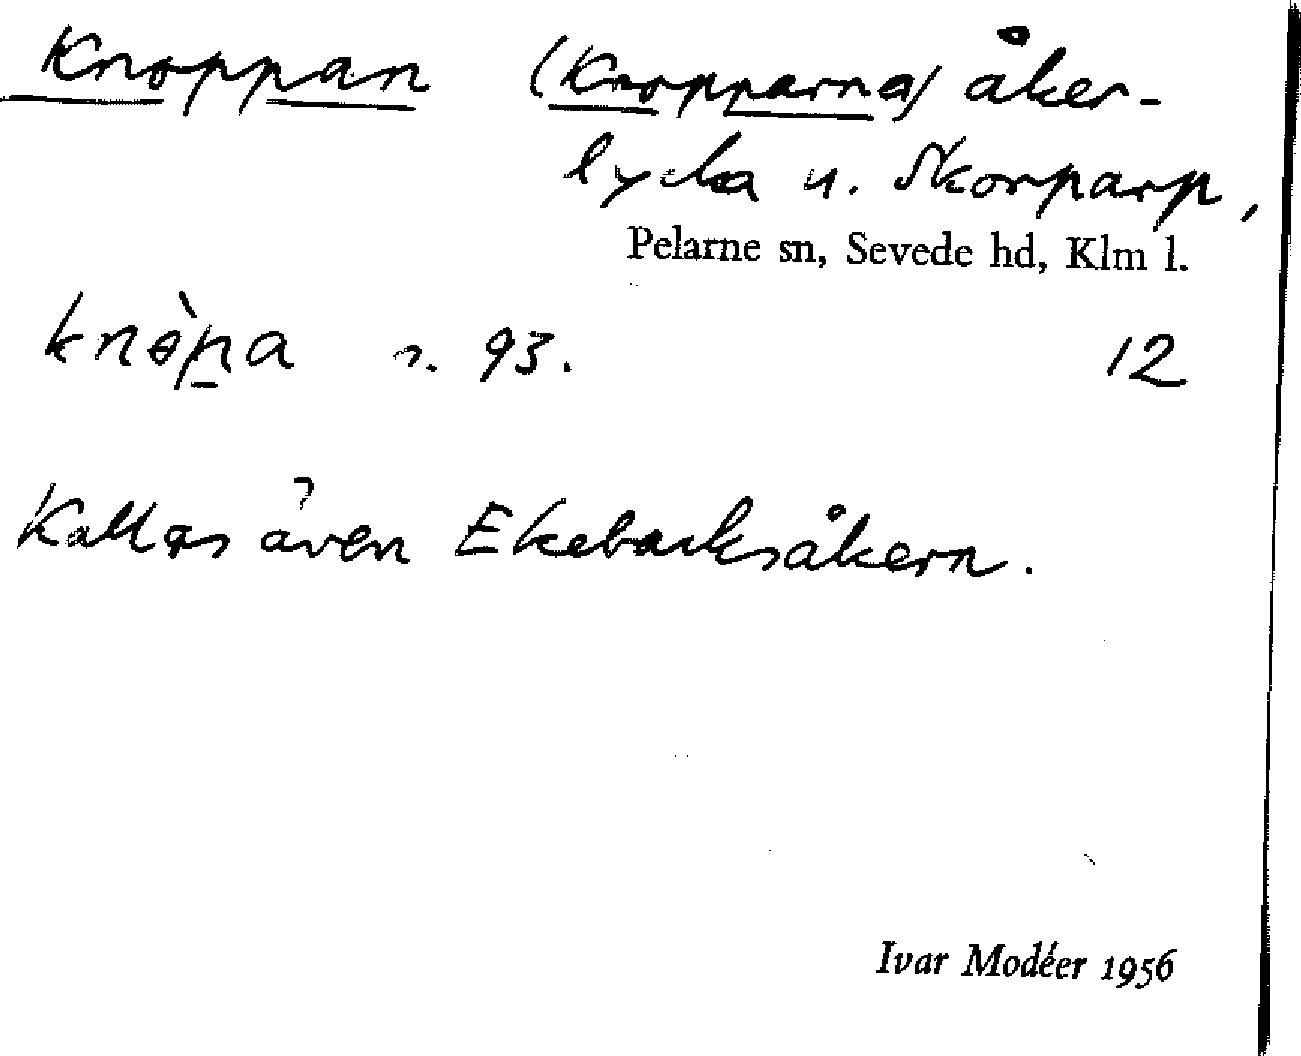 Knoppan (Knopparna) åker-
lycka u. Skorparp,
Pelarne sn, Sevede hd, Klm l.
knɵ̀pa n. 93. 12
Kallas även Ekebacksåkern.
Ivar Modéer 1956